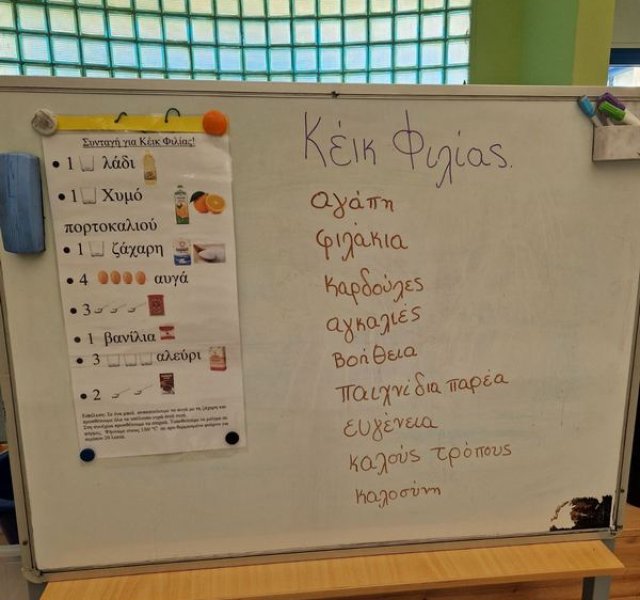 Συνταγή για Κέικ Φιλίας!
• 1 λάδι
• 1 Χυμό
πορτοκαλιού
• 1 ζάχαρη
• 4 αυγά
• 3
• 1 βανίλια
• 3 αλεύρι
• 2
Κέικ Φιλίας.
αγάπη
φιλάκια
καρδούλες
αγκαλιές
βοήθεια
παιχνίδια παρέα
ευγένεια
καλούς τρόπους
καλοσύνη